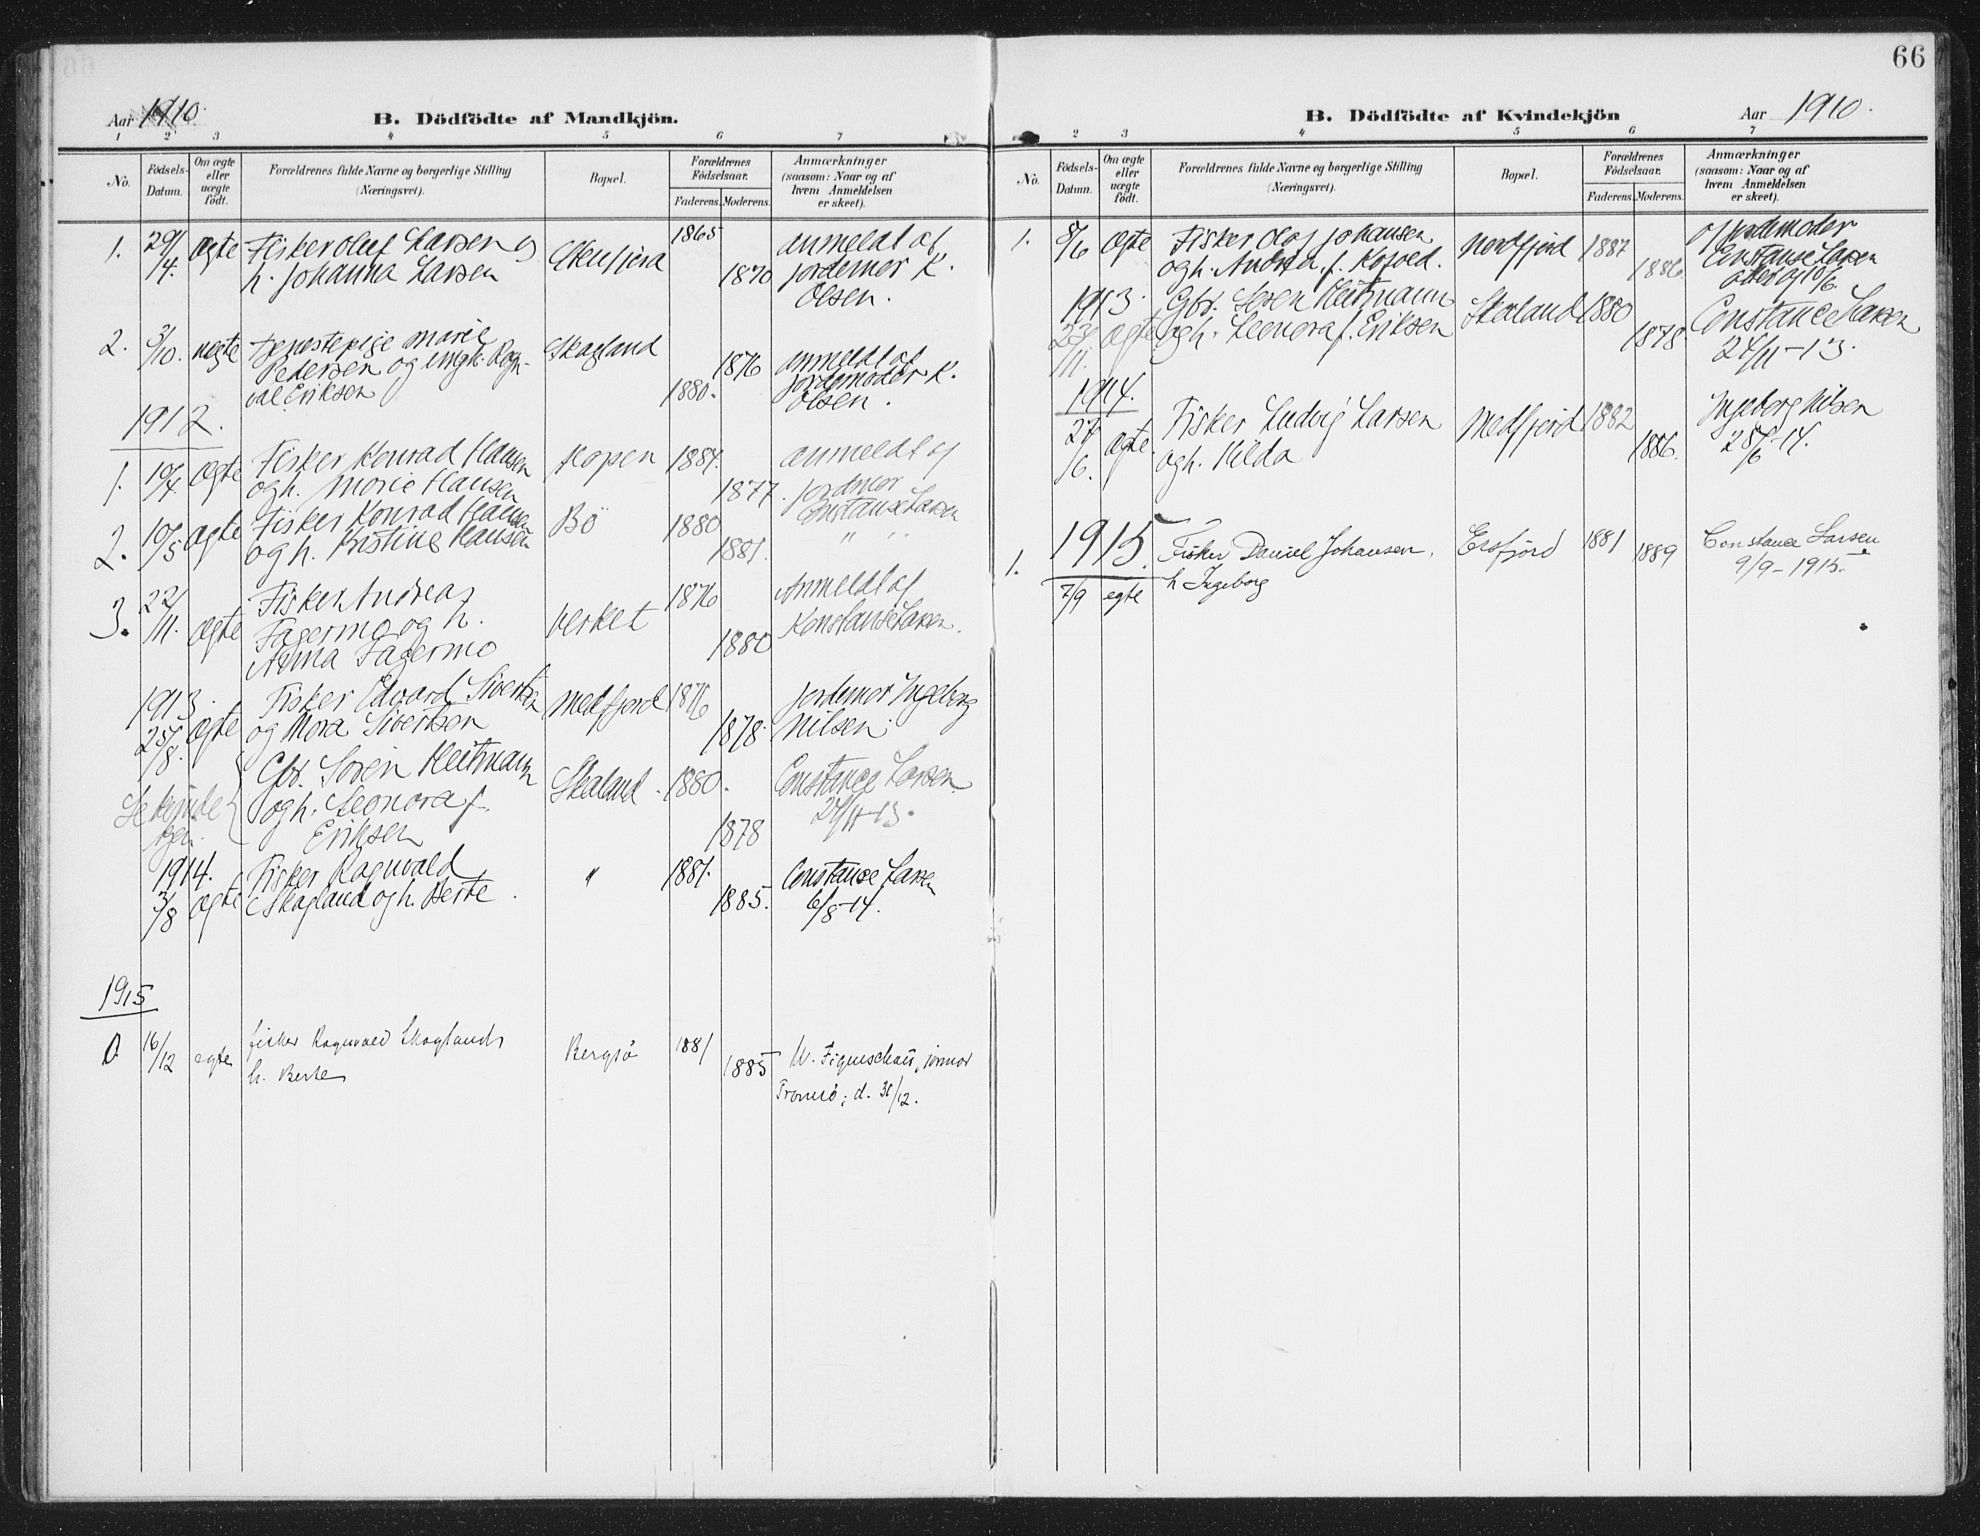 66
Aar 1910.
B. Dödfödte af Mandkjön.
1 2 3 4 5 6 7
No.
Födsels-Datum.
Om ægte eller uægte födt.
Forældrenes fulde Navne og borgerlige Stilling
(Næringsvei).
Bopæl.
Forældrenes Födselsaar.
Faderens. Moderens.
Anmærkninger
(saasom: Naar og af
hvem Anmeldelsen
er skeet).
1. 29/4. ægte Fisker Oluf Larsen og 1865 anmeldt af
h. Johanna Larsen 1870 jordemor K.
Olsen.
2. 3/10. uegte Tjenestepige Marie Skagland 1876 anmeldt af
Pedersen og ungk. Ragn- jordemoder K.
val Eriksen 1880. Olsen.
1912.
1. 10/4. Ægte Fisker Konrad Hansen Kopen 1884. anmeldt af
og h. Marie Hansen 1877. jordmor
Constanse Larsen
2. 10/5 ægte Fisker Konrad Hansen Bö 1880 " "
og h. Kristine Hansen 1881.
3. 22/11. Ægte Fisker Andreas Verket 1876 Anmeldt af
Fagermo og h. Konstanse Larsen.
Anna Fagermo 1880
1913.
25/8. Ægte Fisker Edvard Sivertsen Medfjord 1876 jordemor Ingeborg
og Mora Sivertsen 1878. Nilsen.
Se kvinde-
kjön. Gbr. Sören Heitmann Skaland. 1880. Constance Larsen
og h. Leonora f. 24/11-13.
Eriksen 1878
1914.
3/8 Ægte Fisker Ragnvald " 1881. Constanse Larsen
Skagland og h. Berte. 1885. 6/8-14.
1915
16/12 egte fisker Ragnvald Skogland 1881 Bergsö
h. Berte 1885 W. Figenschau, jormor
Tromsö; d. 31/12.
B. Dödfödte af Kvindekjön
Aar 1910.
2 3 4 5 6 7
No.
Födsels-Datum.
Om ægte eller uægte födt.
Forældrenes fulde Navne og borgerlige Stilling
(Næringsvei).
Bopæl.
Forældrenes Födselsaar.
Faderens. Moderens.
Anmærkninger
(saasom: Naar og af
hvem Anmeldelsen
er skeet).
1. 8/6 Ægte Fisker Olaf Johansen Nordfjord 1887 af jordemoder
og h. Andrea, f. Kofoed. 1886. Constanse Larsen
10/6
1913.
23/11. ægte Gbr. Sören Heitmann Skaland 1880 Constance Larsen
og h. Leonora f. Eriksen 1878. 24/11-13.
1914.
27/6. ægte. Fisker Ludvig Larsen Medfjord 1882 Ingeborg Nilsen
og h. Hilda 1886. 28/6-14.
1915.
1. 7/9 egte Fisker Daniel Johansen, Ersfjord 1881 1889 Constance Larsen
h Ingeborg 9/9-1915.